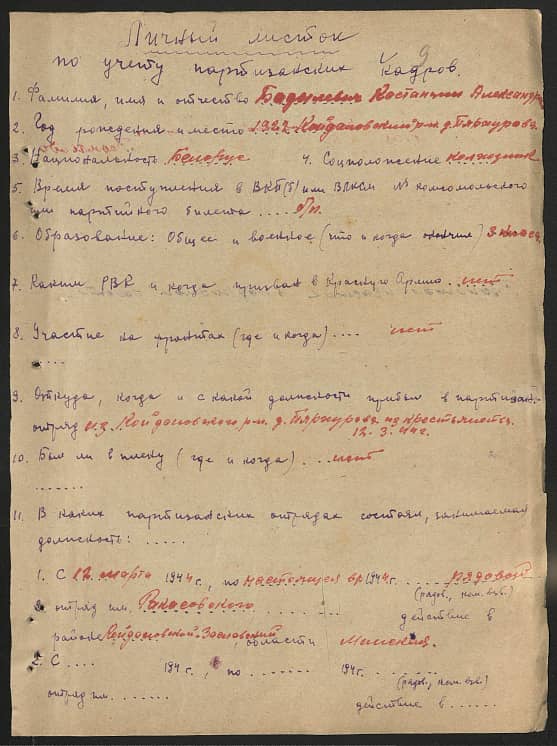 Личный листок
по учету партизанских кадров.
9
1. Фамилия, имя и отчество Костанти Александр
2. Год рождения и место 1927 Койдановский р-н д.
3. Национальность Белорус 4. Соцположение колхозник
5. Время поступления в ВКП(б) или ВЛКСМ № комсомольского
или партийного билета .... б/п.
6. Образование: Общее и военное (что и когда окончил) 3 класса
7. Каким РВК и когда призван в Красную Армию .. нет
8. Участие на фронтах (где и когда) .... нет
.....
9. Откуда, когда и с какой должности прибыл в партизан.
отряд из Койдановского р-н. д. из крестьянства.
12.3.44г.
10. Был ли в плену (где и когда) .... нет
.......
11. В каких партизанских отрядах состоял, занимаемая
должность: .....
1. С 12 марта 1944 г., по настоящея вр. 1944. рядовой
(рядов., ком. взв.)
отряд им. действие в
районе области Минския.
2. С .... 194 г., по ....... 194 г. .......
(рядов., ком. взв.)
отряд им. .......
действие в ......